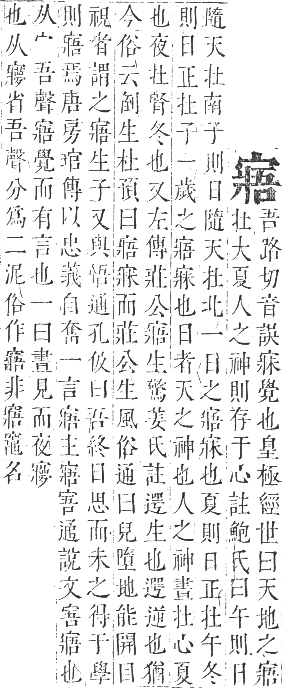 寤
吾路切音誤寐覺也皇極經世曰天地之寤
在大夏人之神則存于心註鮑氏曰午則日
隨天在南子則日隨天在北一日之寤寐也夏則日正在午冬
則日正在子一歲之寤寐也日者天之神也人之神晝在心夏
也夜在腎冬也又左傳莊公寤生驚姜氏註遻生也遻逆也猶
今俗云倒生杜預曰寤寐而莊公生風俗通曰兒墮地能開目
視者謂之寤生子又與悟通孔伋曰吾終日思而未之得于學
則寤焉唐房琯傳以忠義自奮一言寤主寤𡨂通說文𡨂寤也
从宀吾聲寤覺而有言也一曰晝見而夜㝱
也从㝱省吾聲分爲二泥俗作寤非窹竈名